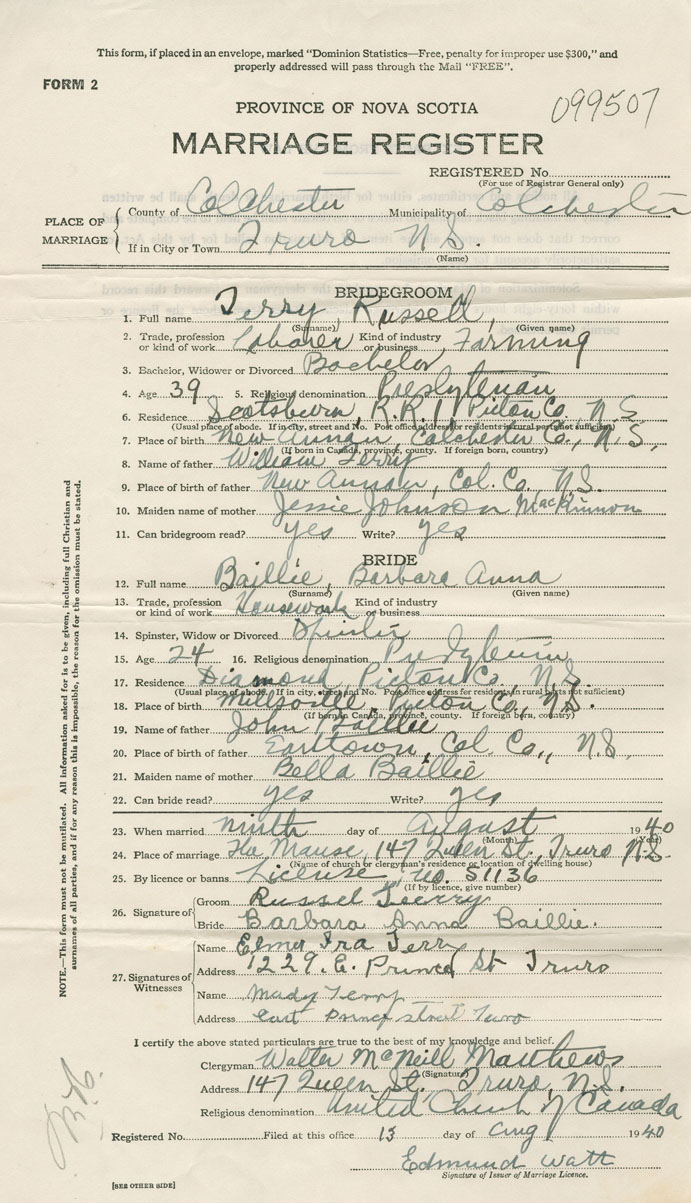 This form, if placed in an envelope, marked "Dominion Statistics—Free, penalty for improper use $300," and
properly addressed will pass through the Mail "FREE".
FORM 2
099507
PROVINCE OF NOVA SCOTIA
MARRIAGE REGISTER
REGISTERED No.
(For use of Registrar General only)
PLACE OF MARRIAGE
County of Colchester Municipality of Colchester
If in City or Town Truro N.S.
(Name)
BRIDEGROOM
1. Full name Terry, Russell,
(Surname) (Given name)
2. Trade, profession or kind of work Laborer Kind of industry or business Farming
3. Bachelor, Widower or Divorced Bachelor
4. Age 39 5. Religious denomination Presbyterian
6. Residence Scotsburn, R.R.1, Pictou Co., N.S
(Usual place of abode. If in city, street and No. Post office address for residents in rural parts not sufficient)
7. Place of birth New Annan, Colchester Co., N.S,
(If born in Canada, province, county. If foreign born, country)
8. Name of father William Terry
9. Place of birth of father New Annan, Col. Co. N.S.
10. Maiden name of mother Jessie Johnson MacKinnon
11. Can bridegroom read? yes Write? yes
BRIDE
12. Full name Baillie, Barbara Anna
(Surname) (Given name)
13. Trade, profession or kind of work Housework Kind of industry or business
14. Spinster, Widow or Divorced Spinster
15. Age 24 16. Religious denomination Presbyterian
17. Residence Diamond, Pictou Co., N.S.
(Usual place of abode. If in city, street and No. Post office address for residents in rural parts not sufficient)
18. Place of birth Millsville, Pictou Co., N.S.
(If born in Canada, province, county. If foreign born, country)
19. Name of father John Baillie
20. Place of birth of father Earltown, Col. Co., N.S.
21. Maiden name of mother Bella Baillie
22. Can bride read? yes Write? yes
23. When married ninth day of August 1940
(Month) (Year)
24. Place of marriage The Manse, 147 Queen St., Truro N.S.
(Name of church or clergyman's residence or location of dwelling house)
25. By licence or banns License, no. 51136
(If by licence, give number)
26. Signature of
Groom Russel Terry
Bride Barbara Anna Baillie.
27. Signatures of Witnesses
Name Elmer Ira Terry
Address 1229. E. Prince St Truro
Name Terry
Address East Prince street Truro
I certify the above stated particulars are true to the best of my knowledge and belief.
Clergyman Walter McNeill Matthews
(Signature)
Address 147 Queen St. Truro, N.S.
Religious denomination United Church of Canada
Registered No. Filed at this office 13 day of Aug 1940
Edmund Watt
Signature of Issuer of Marriage Licence.
[SEE OTHER SIDE]
NOTE.—This form must not be mutilated. All information asked for is to be given, including full Christian and
surnames of all parties, and if for any reason this is impossible, the reason for the omission must be stated.